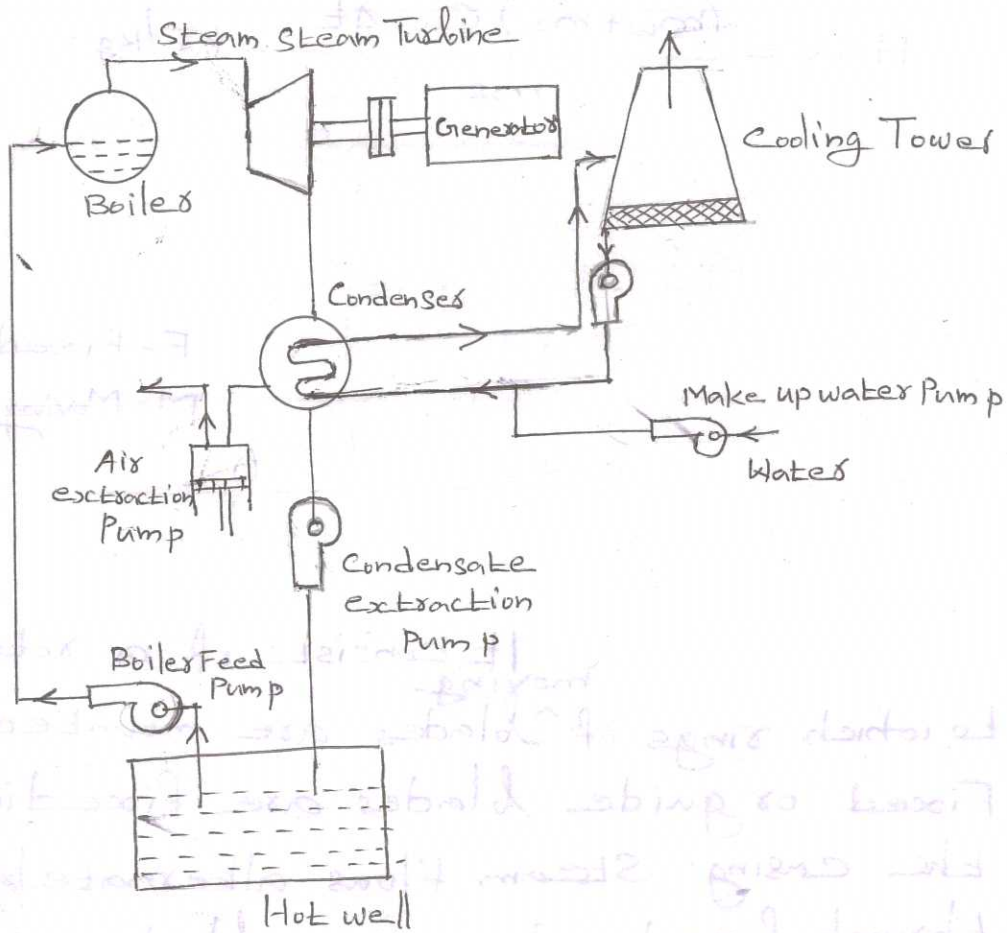 Steam Steam Turbine
Generator
Cooling Tower
Boiler
Condenser
Make up water Pump
Water
Air
extraction
Pump
Condensate
extraction
Pump
Boiler Feed
Pump
Hot well